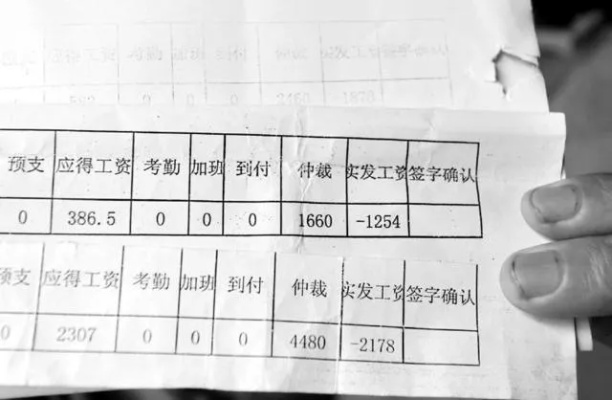 应得工资 考勤 到付
0 0 0
预支 应得工资 考勤 加班 到付 仲裁 实发工资 签字确认
0 386.5 0 0 0 1660 -1254
预支 应得工资 考勤 加班 到付 仲裁 实发工资 签字确认
0 2307 0 0 0 4480 -2178